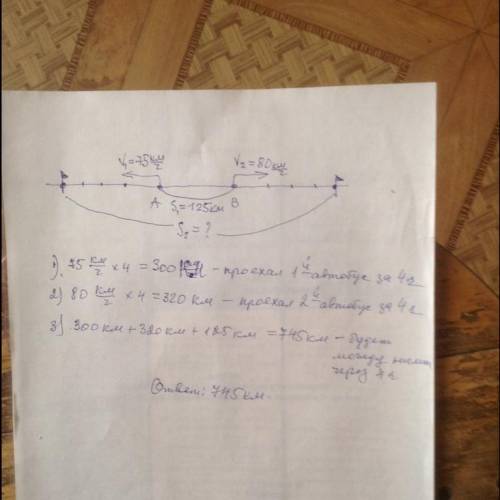 V₁=75 км/г V₂=80 км/г
A S₁=125км B
S₂=?
1) 75 км/г × 4 = 300 км - проехал 1й автобус за 4 г
2) 80 км/г × 4 = 320 км - проехал 2й автобус за 4 г
3) 300 км + 320 км + 125 км = 745 км - будет
между ними
через 4 г
Ответ: 745 км.